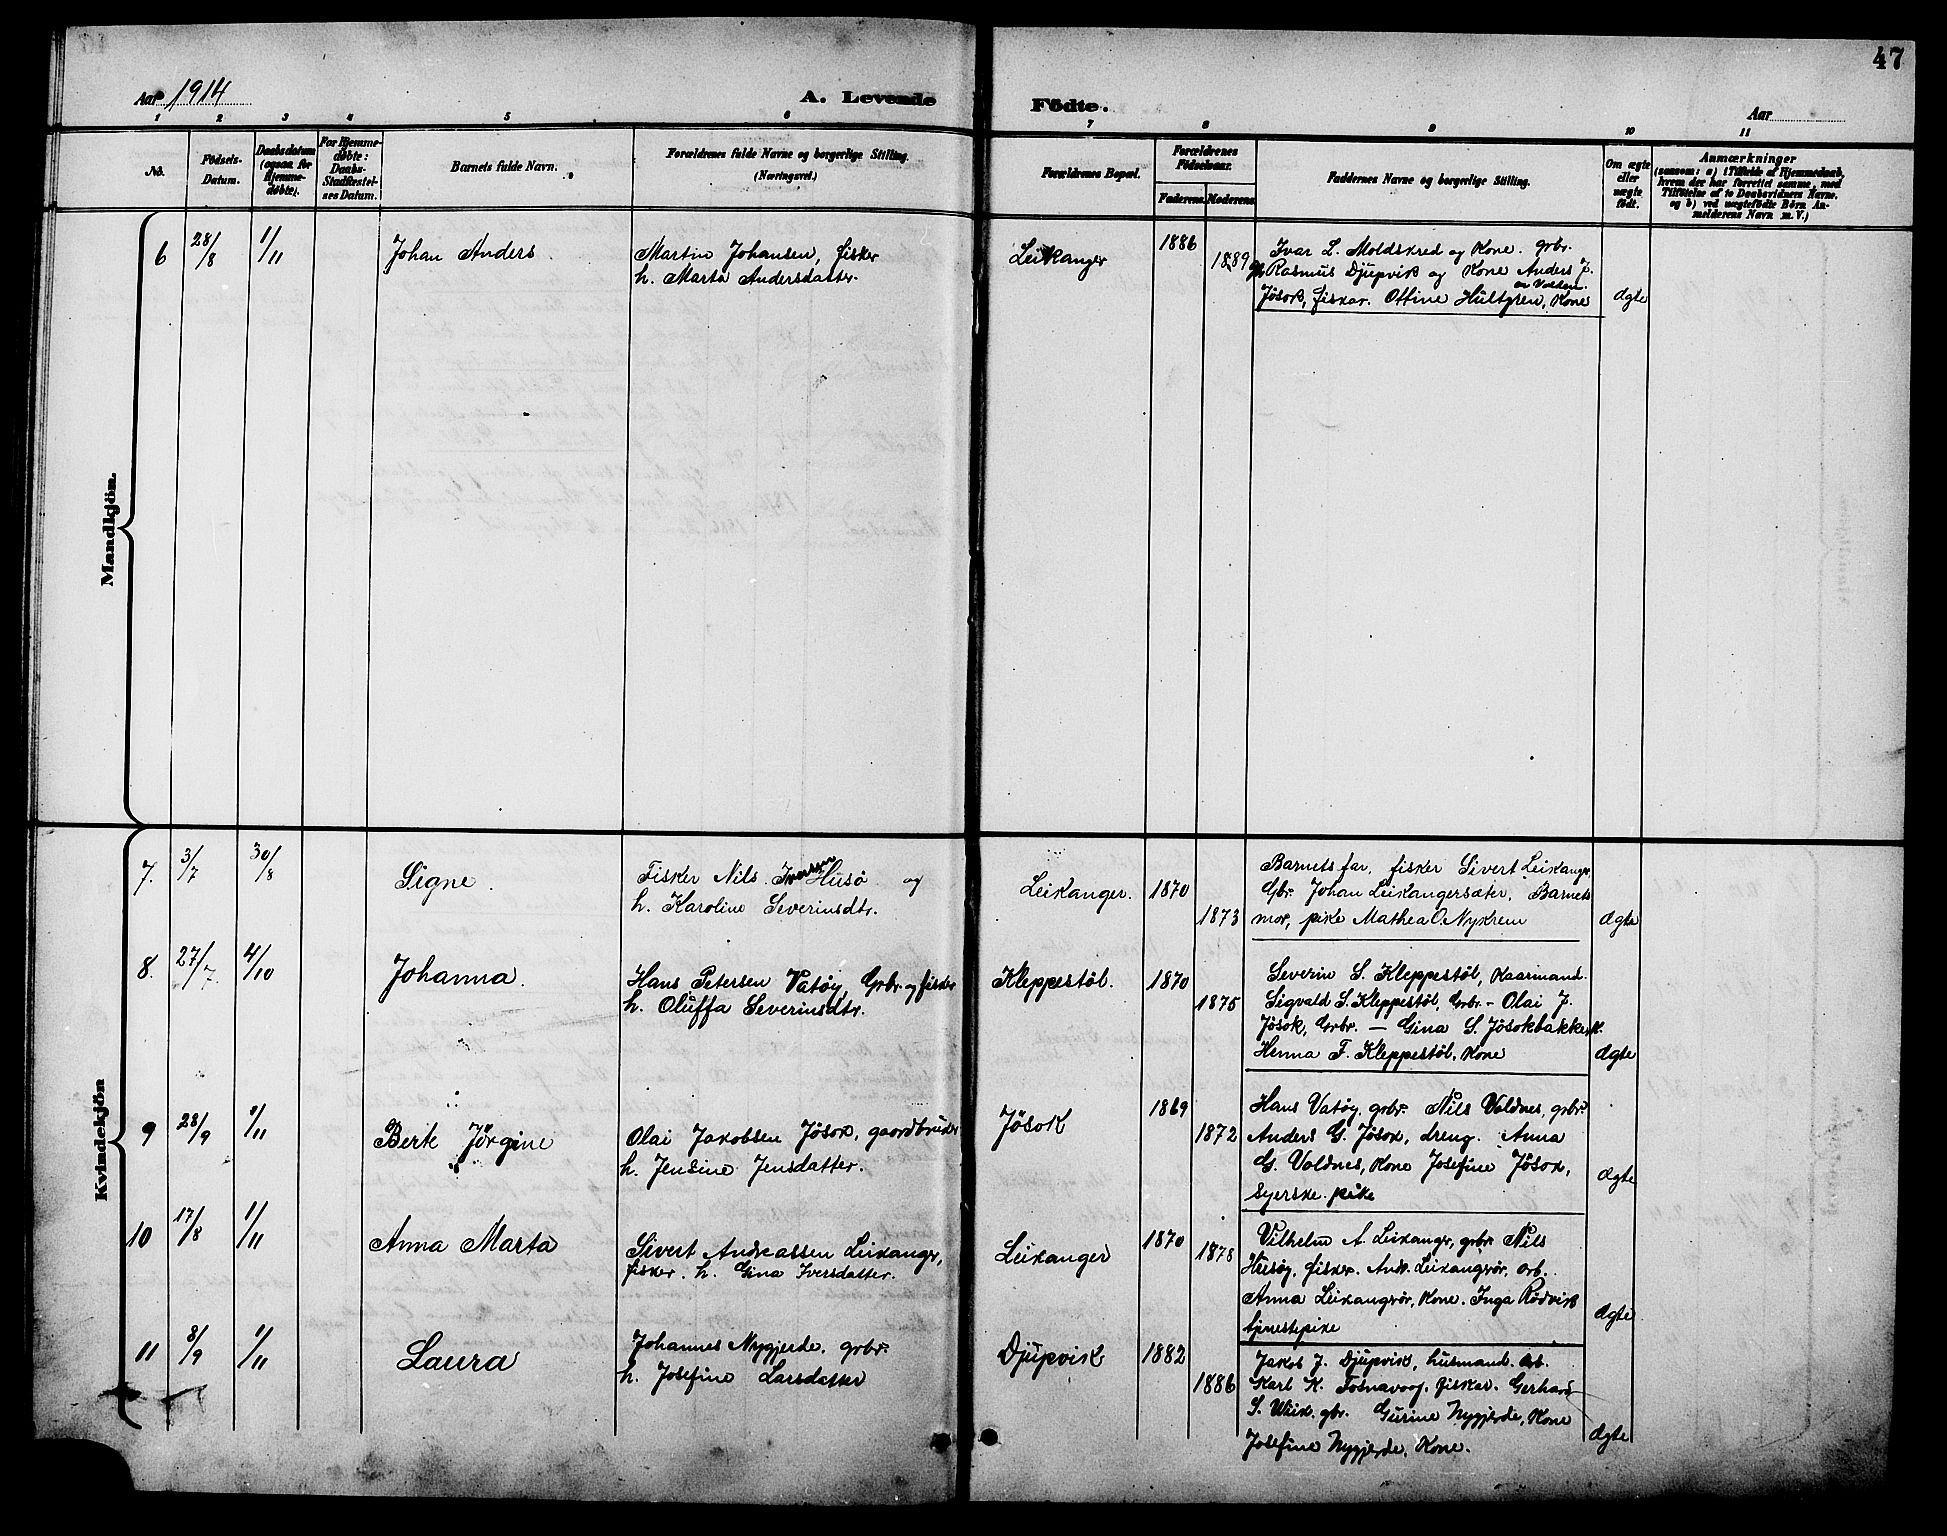 47
Aar 1914
A. Levende
Födte.
Aar
1 2 3 4 5 6 7 8 9 10 11
No.
Födsels-
Datum.
Daabsdatum
(ogsaa for
Hjemme-
døbte).
For Hjemme-
døbte:
Daabs-
Stadfæstel-
ses Datum.
Barnets fulde Navn.
Forældrenes fulde Navne og borgerlige Stilling.
(Næringsvei.)
Forældrenes Bopæl.
Forældrenes
Födselsaar.
Faderens Moderens
Faddernes Navne og borgerlige Stilling.
Om ægte
eller
uægte
födt.
Anmærkninger
(saasom: a) i Tilfælde af Hjemmedaab,
hvem der har forrettet samme, med
Tilföielse af to Daabsvidners Navne,
og b) ved uægtefödte Börn An-
melderens Navn m. V.)
Mandkjön.
6 28/8 1/11 Johan Anders Martin Johansen, fisker
h. Marta Andersdatter.
Leikanger 1886 1889
Ivar L. Moldskred og Kone. grbr.
Rasmus Djupvik og Kone Anders J.
Jösok, fisker. Ottine Hultgren, Kone
ægte
Kvindekjön
7. 3/7 30/8 Signe. Fisker Nils Iversen Husö og
h. Karoline Severinsdtr.
Leikanger. 1870 1873
Barnets far, fisker Sivert Leikangr,
Gbr. Johan Leikangersæter, Barnets
mor, pike Mathea O. Nykrem
ægte
8. 27/7. 4/10 Johanna. Hans Petersen Vatöy, Grbr. og fisker
h. Oluffa Severinsdtr.
Kleppestöl. 1870 1875
Severin S. Kleppestöl, Kaarmand.
Sigvald S. Kleppestöl, Grbr. - Olai J.
Jösok, Grbr. — Gina S. Jösokbakke, K.
Henna F. Kleppestöl, Kone
ægte
9 28/9 1/11 Berte Jörgine Olai Jakobsen Jösok, gaardbruker
h. Jensine Jensdatter.
Jösok 1869 1872
Hans Vatöy, grbr. Nils Voldnes, grbr.
Anders G. Jösok, dreng. Anna
G. Voldnes, Kone Josefine Jösok,
syerske. pike
ægte
10 17/8 1/11 Anna Marta Sivert Andreassen Leikangr,
fisker. h. Gina Iversdatter.
Leikanger 1870 1878
Vilhelm A. Leikangr, grbr. Nils
Husöy, fisker. Andr. Leikangrör, arb.
Anna Leikangrör, Kone. Inga Rödvik
tjenestepike
ægte
11 8/9 1/11 Laura Johannes Nygjerde, grbr.
h. Josefine Larsdatter
Djupvik 1882 1886
Jakob J. Djupvik, husmand. arb.
Karl K. Fosnavaag, fisker. Gerhard
S. Wiik. gbr. Gurine Nygjerde, Kone
Josefine Nygjerde, Kone.
ægte